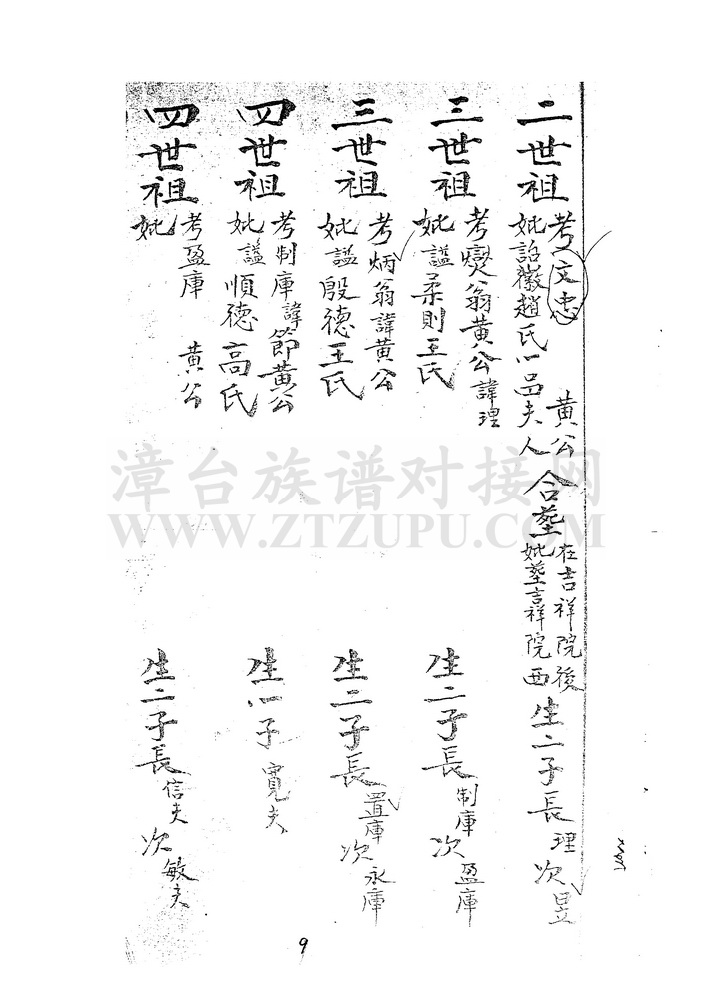 二世祖 考文忠 黃公 合塟 在吉祥院後 生二子長理次昱
妣詔徽趙氏一品夫人 妣塟吉祥院西
三世祖 考燮翁黃公諱理 生二子長制庫次盈庫
妣謚柔則王氏
三世祖 考炳翁諱黃公 生二子長置庫次永庫
妣謚殷德王氏
四世祖 考制庫諱節黃公 生一子寬夫
妣謚順德高氏
四世祖 考盈庫 黃公 生二子長信夫次敏夫
妣
漳台族谱对接网
WWW.ZTZUPU.COM
9